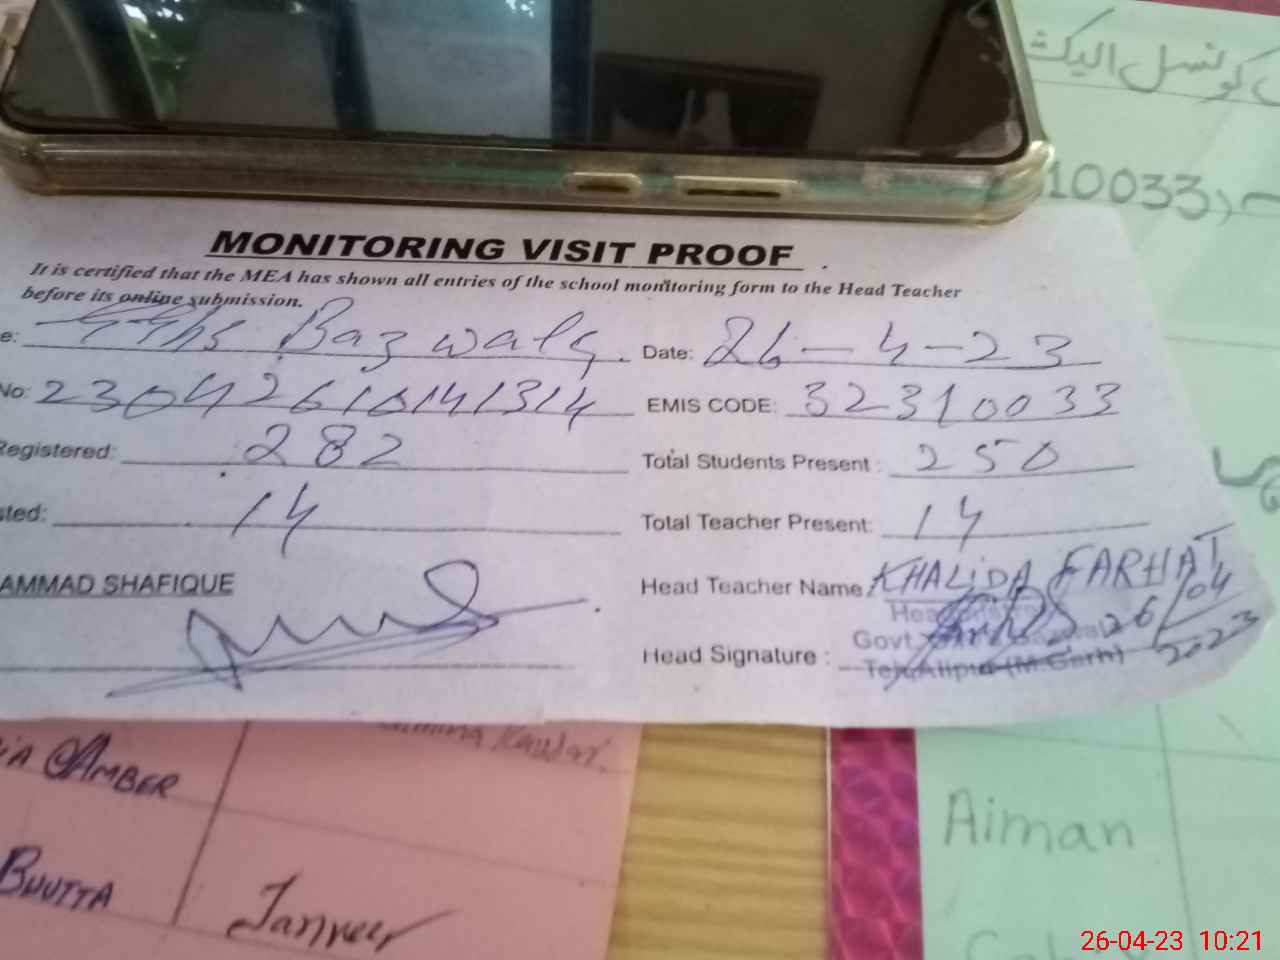 کونسل الیکش
10033
MONITORING VISIT PROOF
It is certified that the MEA has shown all entries of the school monitoring form to the Head Teacher
before its online submission.
e: Bazwala Date: 26-4-23
No: 23042610141314 EMIS CODE: 32310033
Registered: 282 Total Students Present : 250
sted: 14 Total Teacher Present: 14
AMMAD SHAFIQUE Head Teacher Name KHALIDA FARHAT
Head Signature : Govt 26/04
Alipur (M.Garh) 2023
AMBER
BHUTTA Tanveer
Aiman
26-04-23 10:21